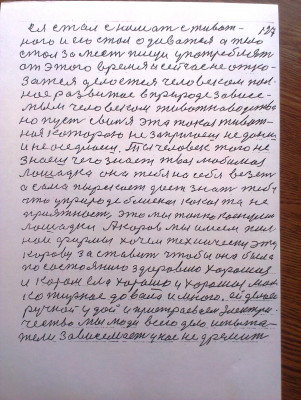 127
ея стал снимать с живот-
ного и его стал одеватся а тело
стал за место пищи употреблять
от этого время и сейчас не отка-
зался делается человеком пол-
ное развитие в природе зависе-
мым человеком животноводство
но пуст свиня эта такая живот-
ная которою не запрягеш не дома
и не оседлаеш. Ты человек того не
знаеш чего знает твоя любимая
лошадка она тебя на себя везет
а сама паркает дает знать тебе
что в природе близка какая та не
приятность, это мы только касаемся
лошадки А корова мы имеем пол-
ной фирмы хочем технически эту
корову заставить чтобы она была
по состоянию здоровию хорошая
и корм ела хорошо и хороша мол-
ко жирное давала и много. ей делаем
ручной удой и пристраеваем электри-
чество мы люди всего дело испыта-
тели Зависемает у нас не дремит